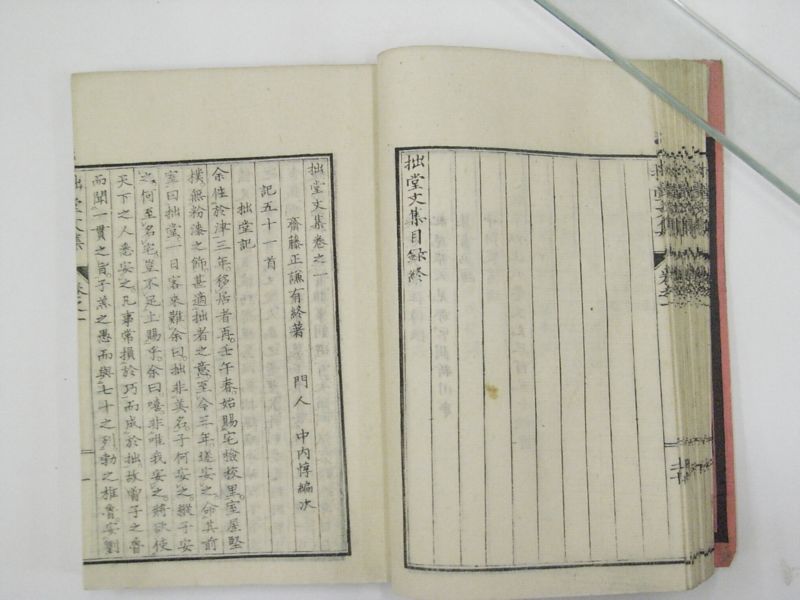 拙堂文集目録終
拙堂文集卷之一
齋藤正謙有終著 門人 中内惇編次
記五十一首
拙堂記
余住於津三年。移居者再。壬午春。始賜宅檢校里。室屋堅
樸。無粉漆之飾。甚適拙者之意。至今三年。遂安之。命其前
室曰拙堂。一日客來難余曰。拙非美名。子何安之。縱子安
之。何至名宅。豈不足主賜乎。余曰。嘻。非唯我安之。將欲使
天下之人悉安之。凡事常損於巧而成於拙。故曾子之魯
而聞一貫之旨。子羔之愚而與七十之列。勃之椎魯安劉
拙堂文集
卷之一